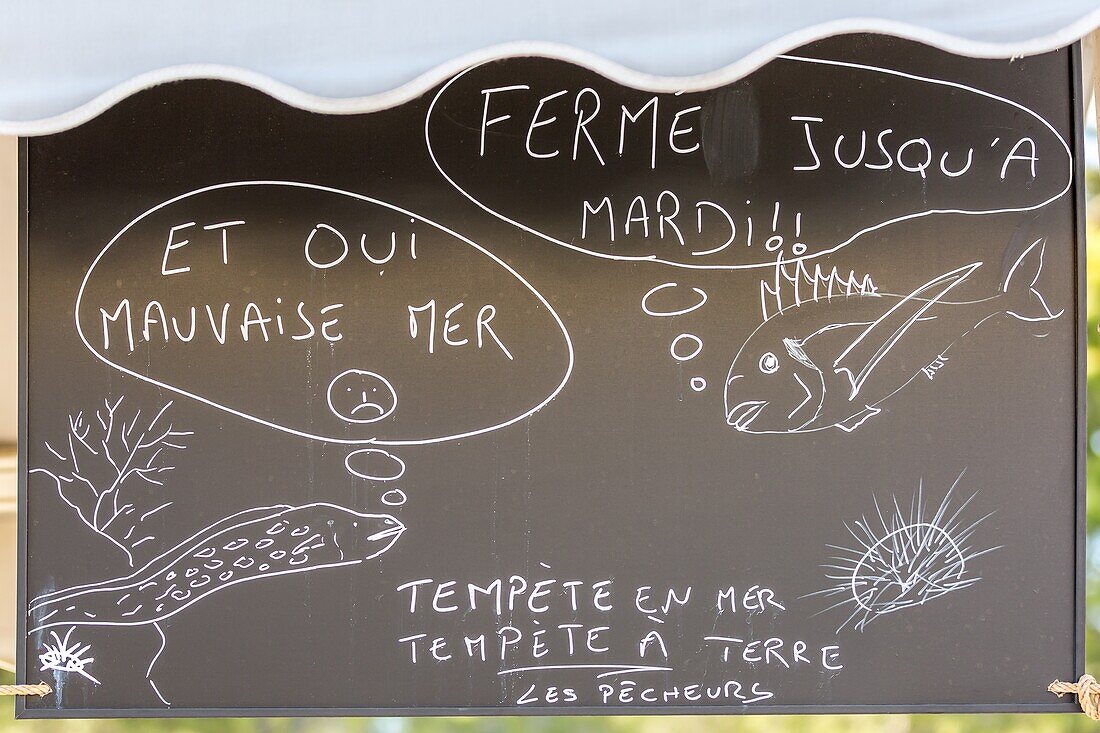 FERMÉ JUSQU'A
MARDI!!
ET OUI
MAUVAISE MER
TEMPÈTE EN MER
TEMPÈTE À TERRE
LES PÊCHEURS